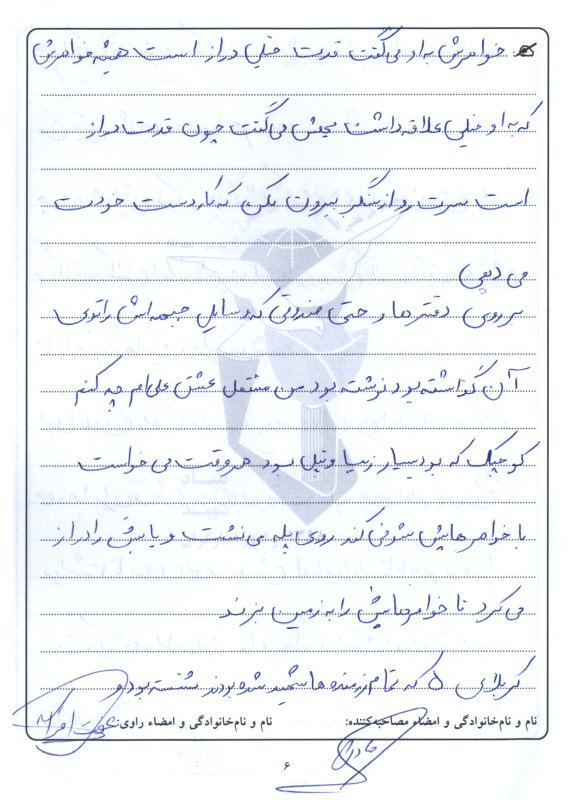 خواهرش به او می‌گفت قدت خیلی دراز است همیشه خواهرش
که به او خیلی علاقه داشت بهش می‌گفت چون قدت دراز
است سرت رو از سنگر بیرون نکن که کار دست خودت
می دهی
بر روی دفترها و حتی صندوقی که وسایل جبهه اش را توی
آن گذاشته بود نوشته بود من مشتعل عشق علی ام چه کنم
کوچیک که بود بسیار زیبا و تپل بود هر وقت می خواست
با خواهرهایش شوخی کند روی پله می نشست و پایش را دراز
می کرد تا خواهرهایش را به زمین بزند
کربلای ۵ که تمام رزمنده ها شهید شده بودند نشسته بود و
نام و نام‌خانوادگی و امضاء مصاحبه‌کننده: نام و نام‌خانوادگی و امضاء راوی:
۶